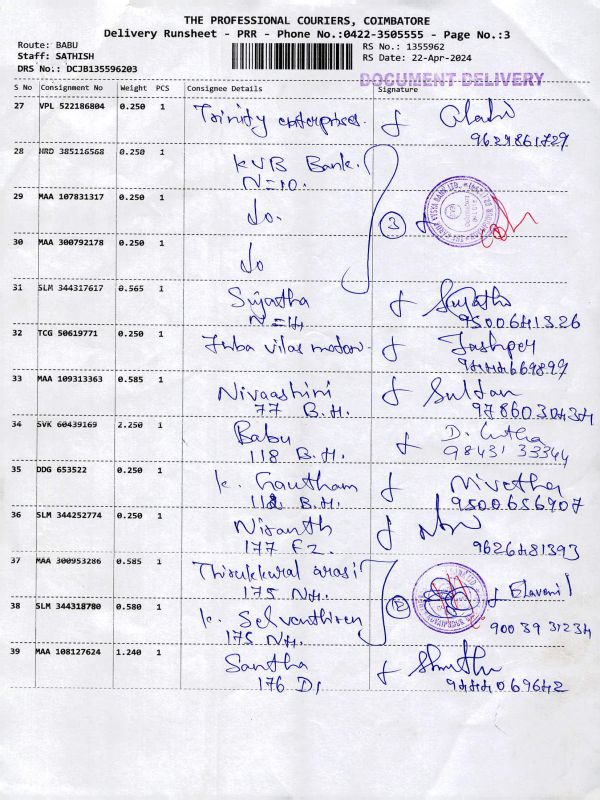 THE PROFESSIONAL COURIERS, COIMBATORE
Delivery Runsheet - PRR - Phone No.:0422-3505555 - Page No.:3
Route: BABU
RS No.: 1355962
Staff: SATHISH
RS Date: 22-Apr-2024
DRS No.: DCJB135596203
DOCUMENT DELIVERY
S No Consignment No Weight PCS Consignee Details Signature
27 VPL 522186804 0.250 1 Trinity enterprises.
9629861729
28 HRD 385116568 0.250 1 KVB Bank.
N=10.
29 MAA 107831317 0.250 1 do.
3
30 MAA 300792178 0.250 1 do
31 SLM 344317617 0.565 1 Sujatha Sujatha
N=14 9500641326
32 TCG 50619771 0.250 1 vilas
9444669899
33 MAA 109313363 0.585 1 Nivaashini Sultan
77 B.H. 9786030434
34 SVK 60439169 2.250 1 Babu D.
118 B.H. 98431 33344
35 DDG 653522 0.250 1 K. Gautham Nivetha
118 B.H. 9500656907
36 SLM 344252774 0.250 1 Nisanth
177 F2. 9626481393
37 MAA 300953286 0.585 1 Thirukkural arasi
175 NH. Elavenil
38 SLM 344318780 0.580 1 K. Selvanthiren 90039 31234
175 NH.
39 MAA 108127624 1.240 1 Santha Shruthi
176 D1 9444069642